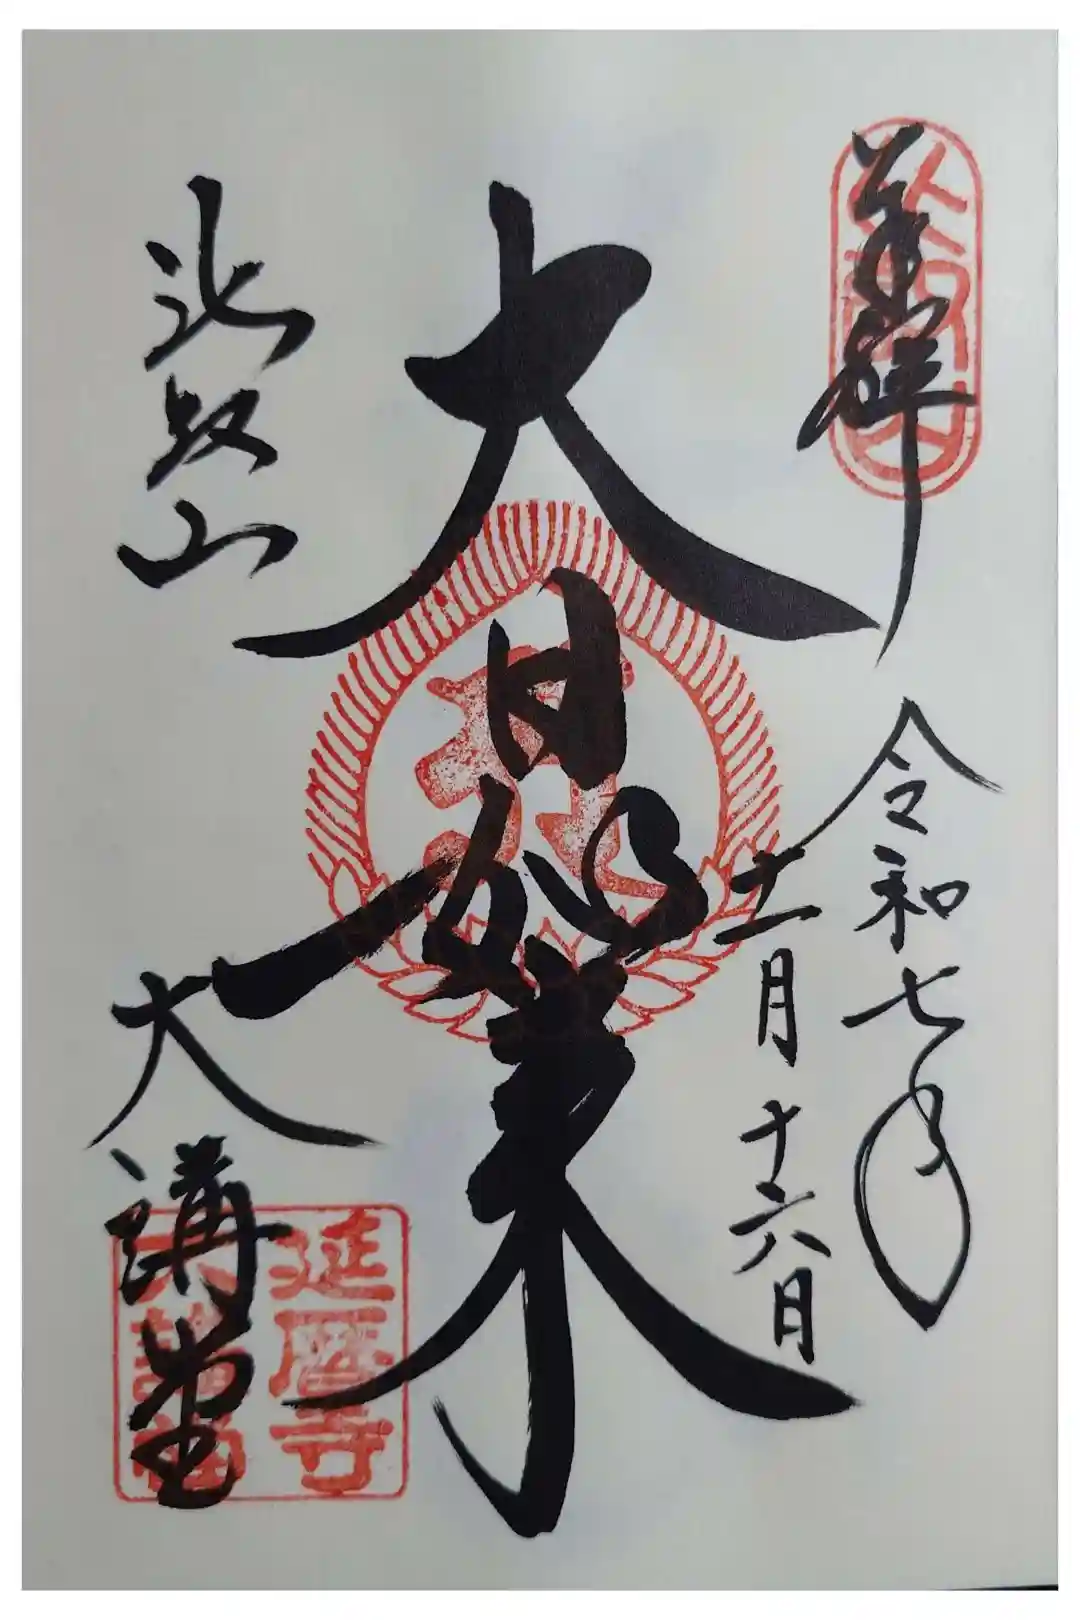 奉拝
比叡山
令和七年
十一月十六日
大日如来
比叡山
大講堂
延暦寺
大講堂